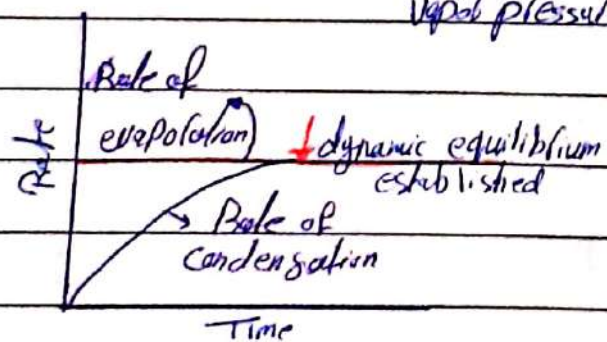 Vapor pressur
Rate of
evaporation
Rate
dynamic equilibrium
established
Rate of
Condensation
Time